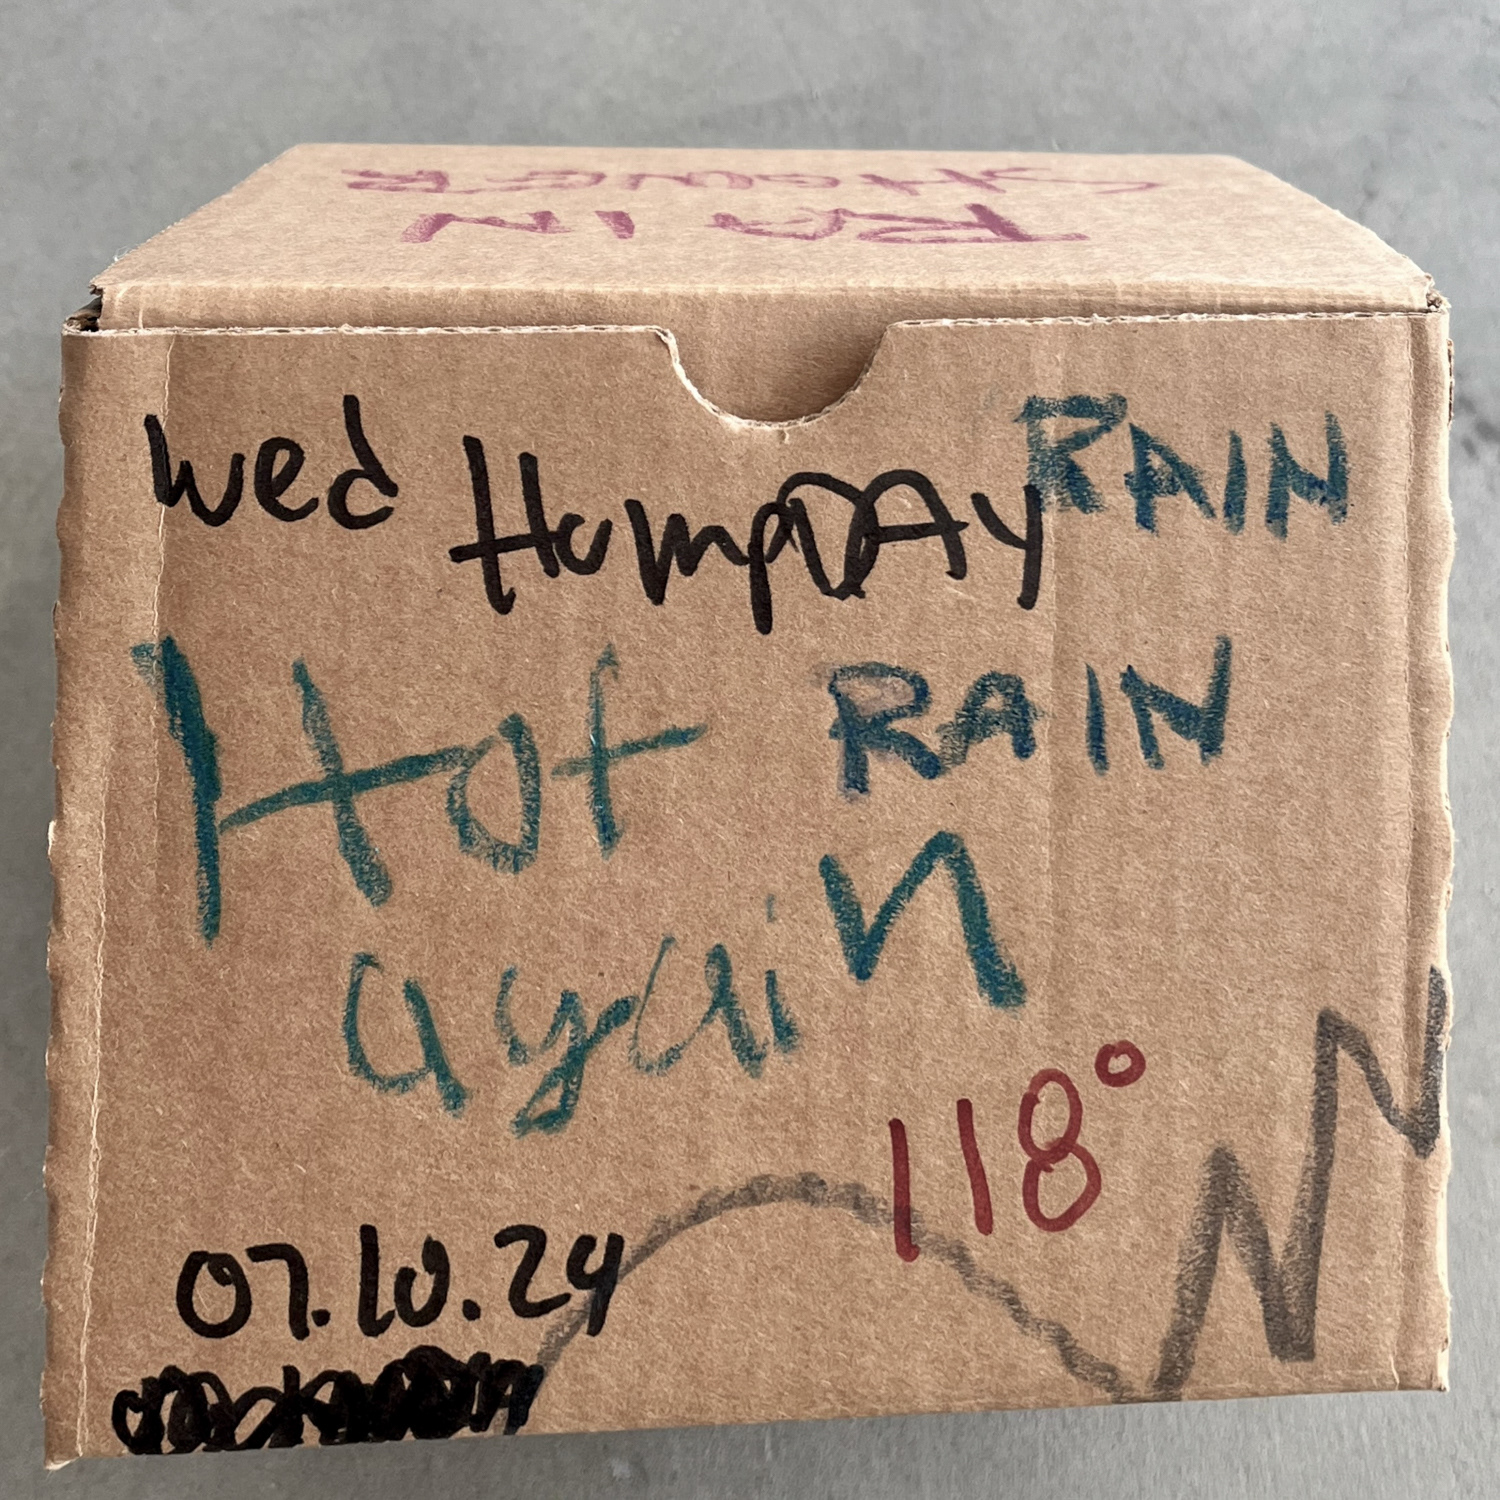 RAIN
SHOWER
Wed HumpDAy RAIN
Hot RAIN
again
118°
07.10.24